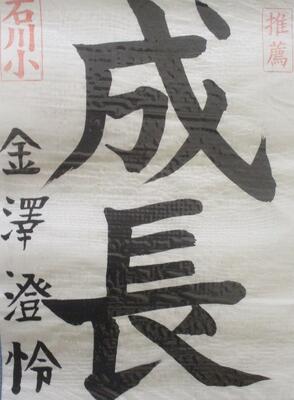 推薦
成長
石川小
金澤澄怜